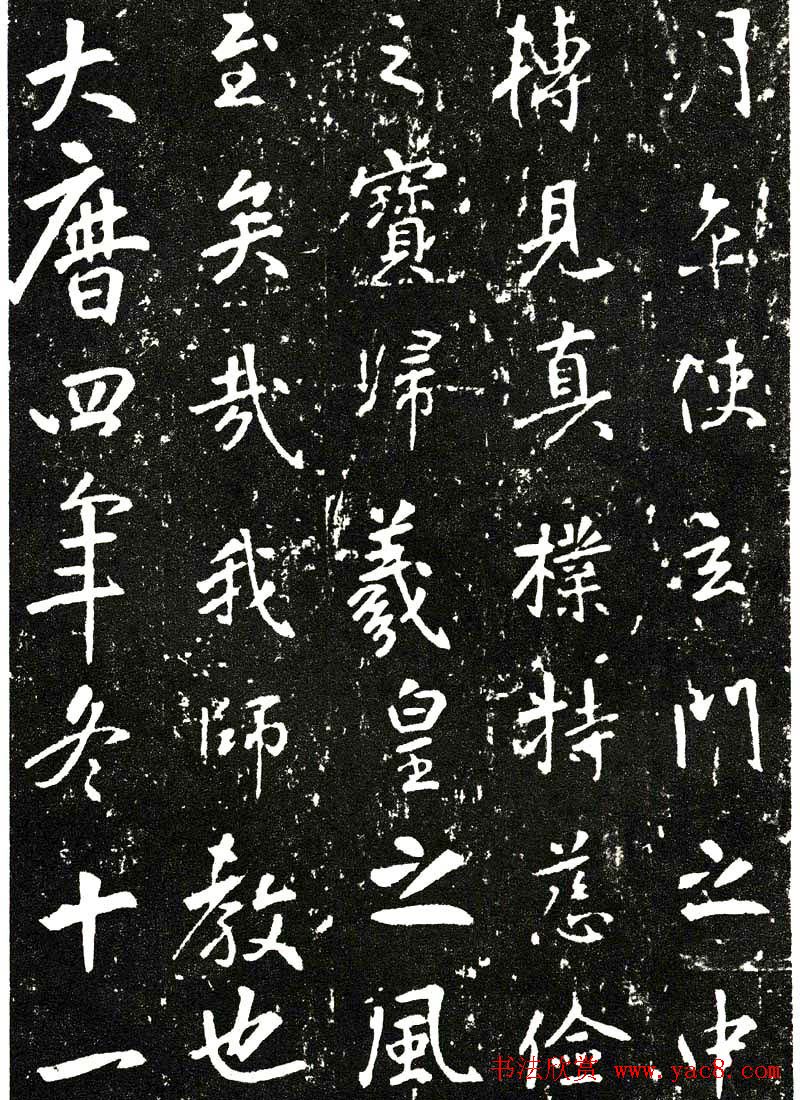 月使玄門之中
轉見真樸持慈儉
之寶歸羲皇之風
至矣哉我師教也
大曆四年冬十一
书法欣赏 www.yac8.com